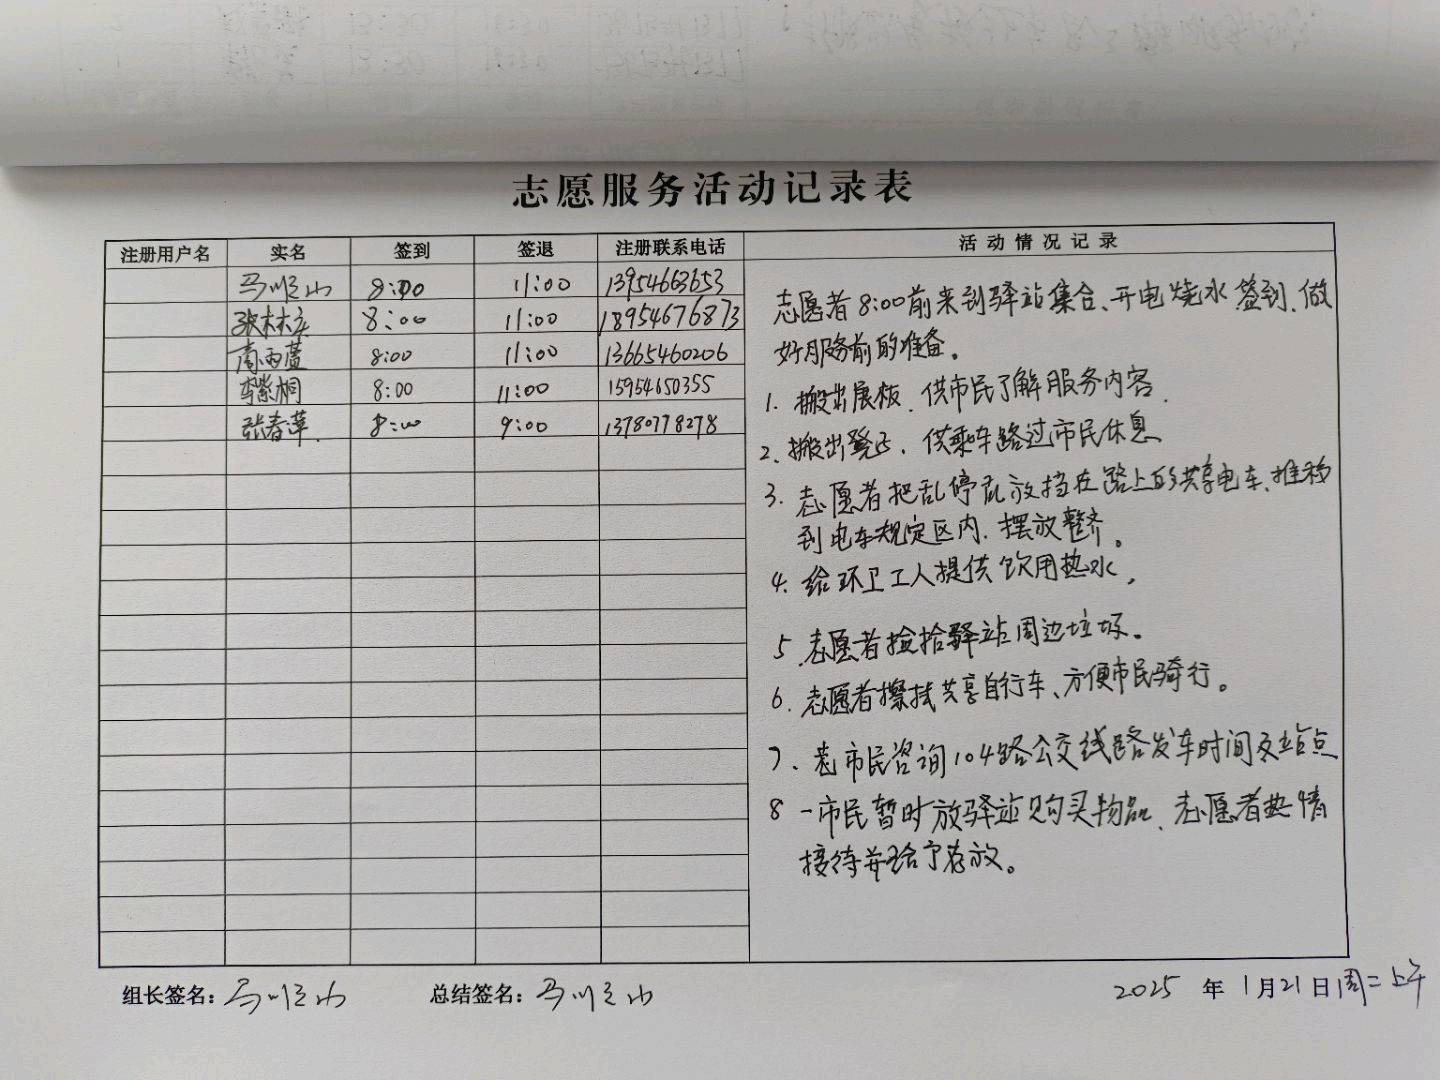 志愿服务活动记录表
注册用户名 实名 签到 签退 注册联系电话 活动情况记录
马顺山 8:00 11:00 13954663653
张林彦 8:00 11:00 18954676873
高雨蘆 8:00 11:00 13665460206
李紫桐 8:00 11:00 15954650355
张春萍 8:00 9:00 13780778278
志愿者8:00前来到驿站集合、开电烧水签到、做
好服务前的准备。
1. 搬出展板、供市民了解服务内容.
2、搬出凳子、供乘车路过市民休息
3. 志愿者把乱停乱放挡在路上的共享电车、推移
到电车规定区内、摆放整齐。
4. 给环卫工人提供饮用热水,
5、志愿者捡拾驿站周边垃圾。
6. 志愿者擦拭共享自行车、方便市民骑行。
7、市民咨询104路公交线路发车时间及站点
8 一市民暂时放驿站购买物品、志愿者热情
接待并给予存放。
组长签名:马顺山 总结签名:马顺山 2025年1月21日周二上午